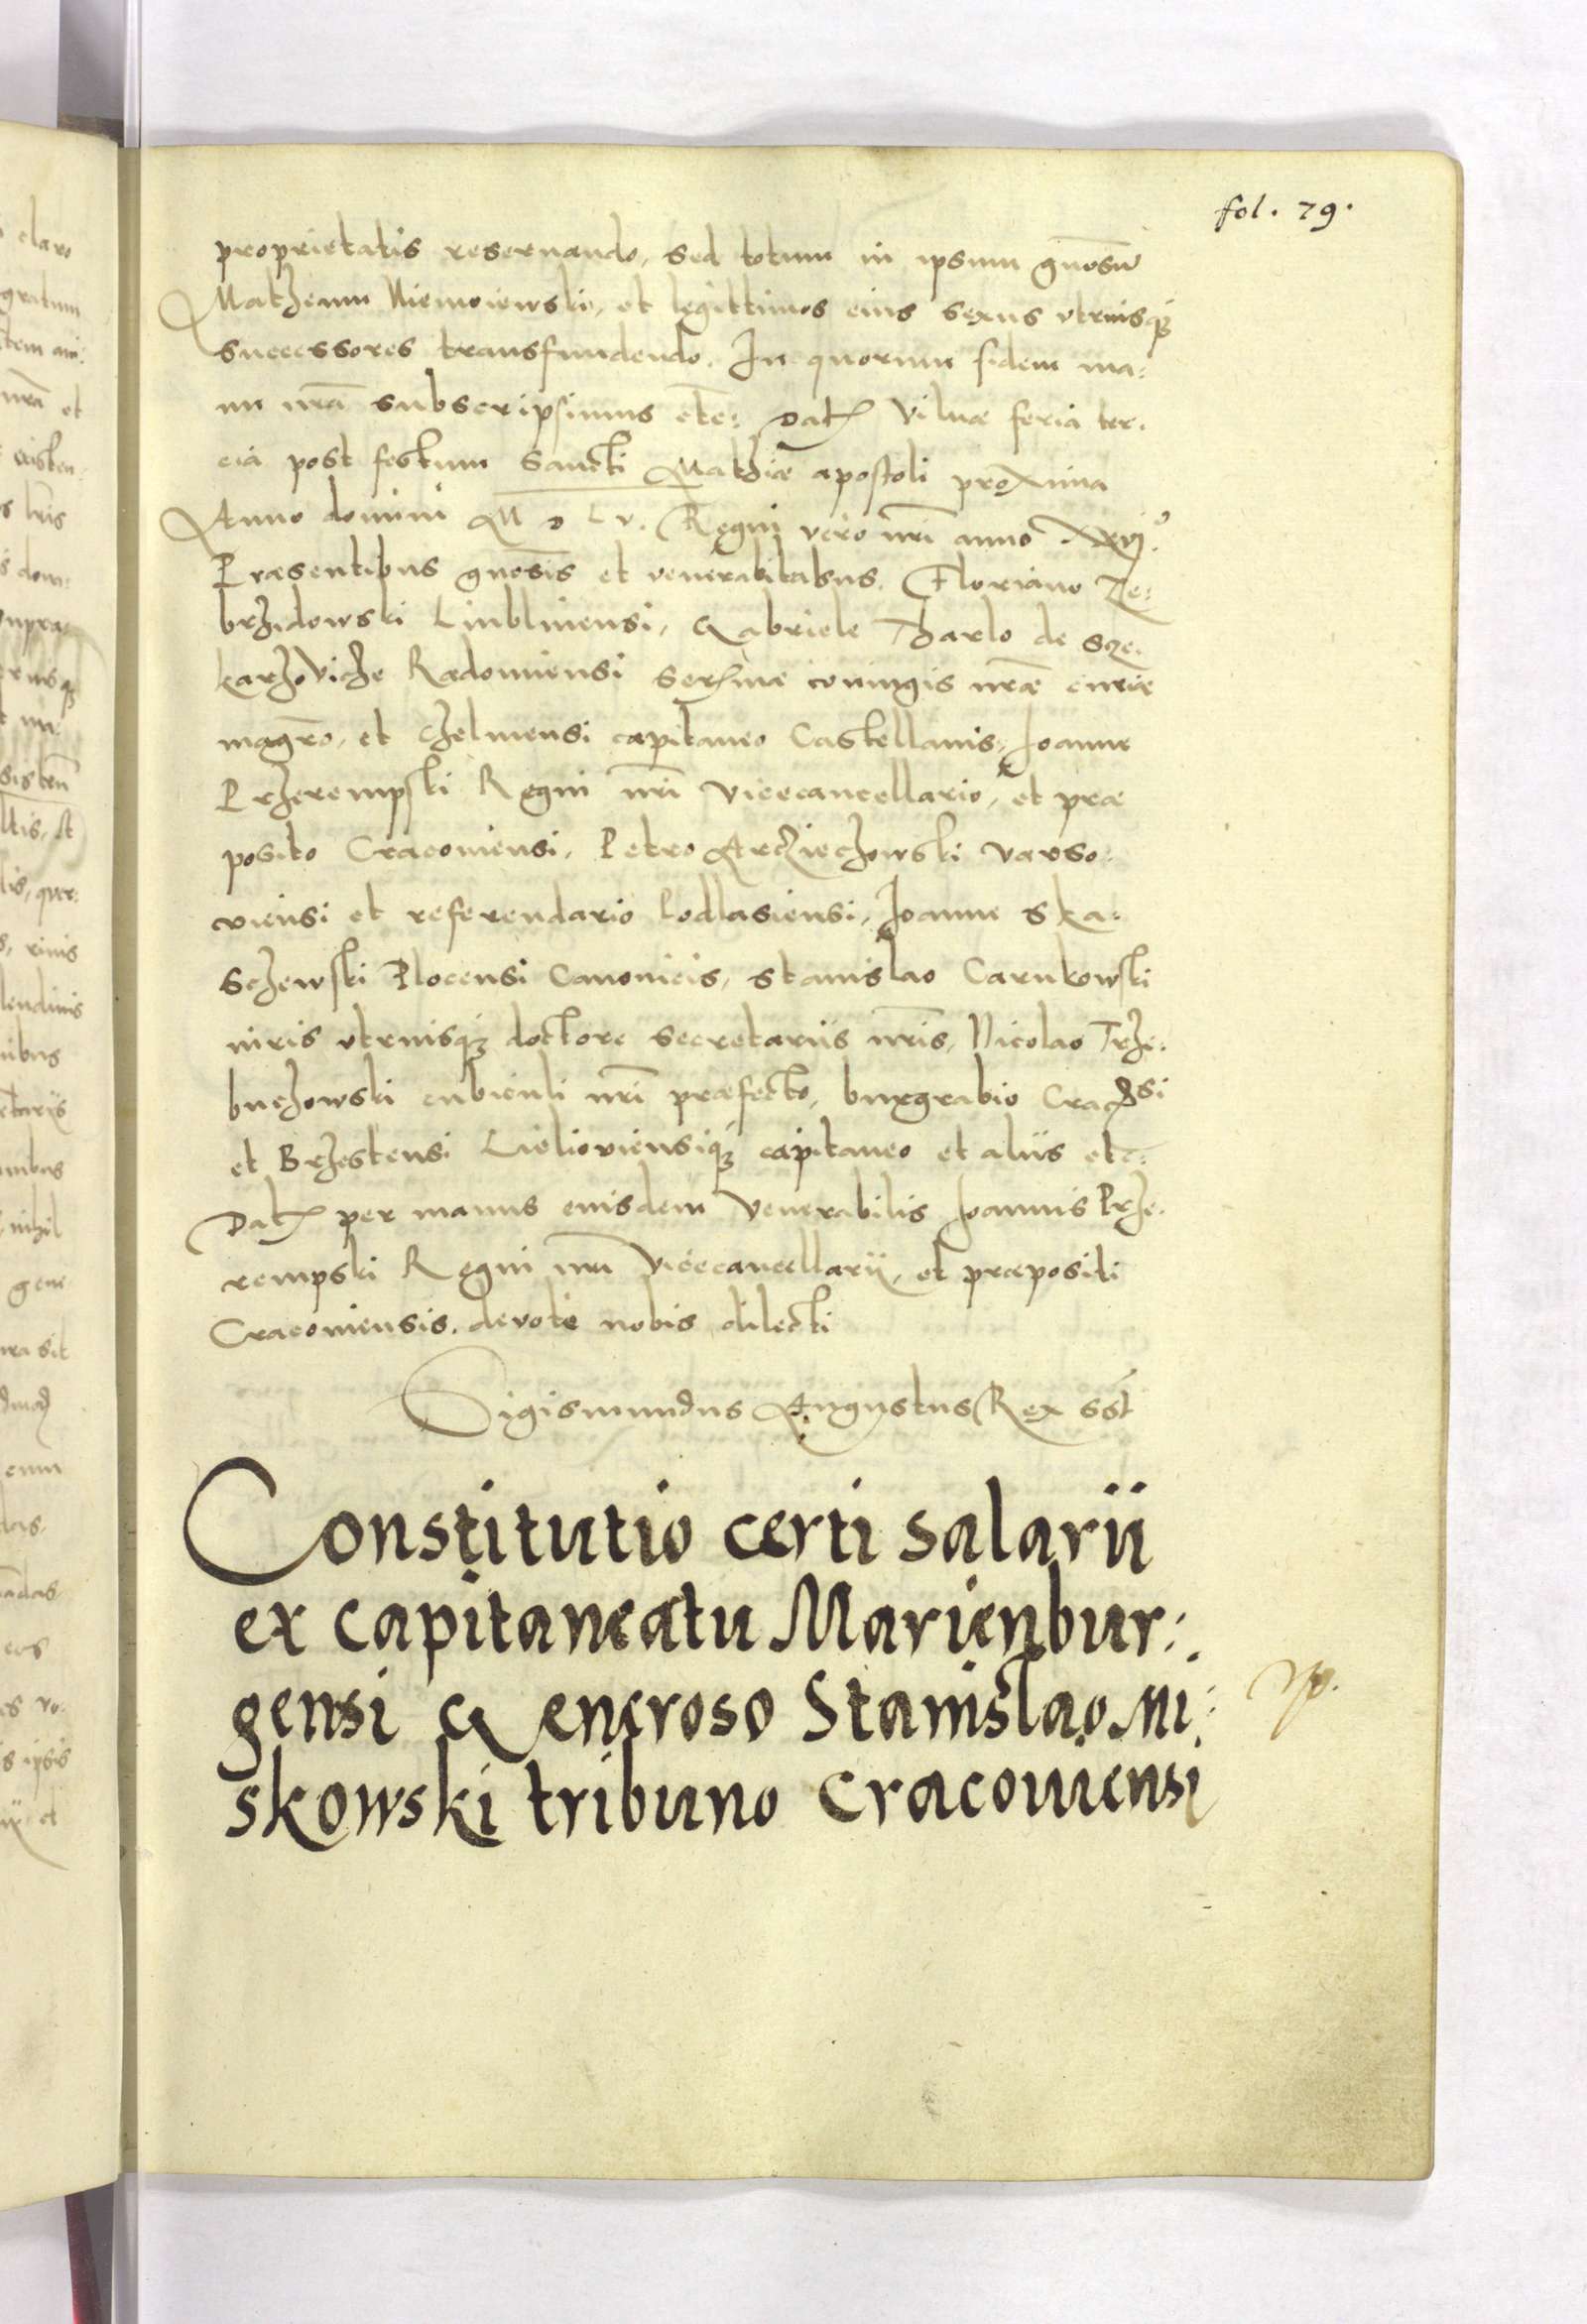 fol. 79.
proprietatis reseruando, sed totum in ipsum gnosū
Matheum Niemoiewski, et legittimos eius sexus vtriusqȝ
successores transfundendo. In quorum fidem ma:
nu nrā subscripsimus etc: Dat Vilnæ feria ter.
cia post festum Sancti Mathiæ apostoli proxima
Anno domini M D L v. Regni vero nrī anno xxvj.º
Præsentibus gnosis et venerabilibus. Floriano Ze:
brzidowski Linblinensi, Gabriele Tharlo de Sze.
karzoviche Radomiensi Sermæ coniugis nrāe curiæ
magrō, et Chelmensi capitaneo Castellanis, Joanne
Przerempski Regni nrī Vicecancellario, et præ
posito Cracouiensi, Petro Arcziechowski Varso:
viensi et referendario Podlasiensi, Joanne Ska:
Schewski Plocensi Canonicis, Stanislao Carnkowski
iuris vtriusqȝ doctore Secretariis nrīs, Nicolao Trze:
buchowski cubiculi nrī præfecto, burgrabio Cracsi
et Brzestensi Lielioviensiqȝ capitaneo et aliis etc:
Dat per manus eiusdem Venerabilis Joannis Prze.
rempski Regni nrī Vicecancellarii, et præpositi
Cracouiensis. devote nobis dilecti
Sigismundus Augustus Rex sst
Constitutio certi salarii
ex capitaneatu Marienbur:
gensi Generoso Stanislao Mi:
skowski tribuno Cracouiensi